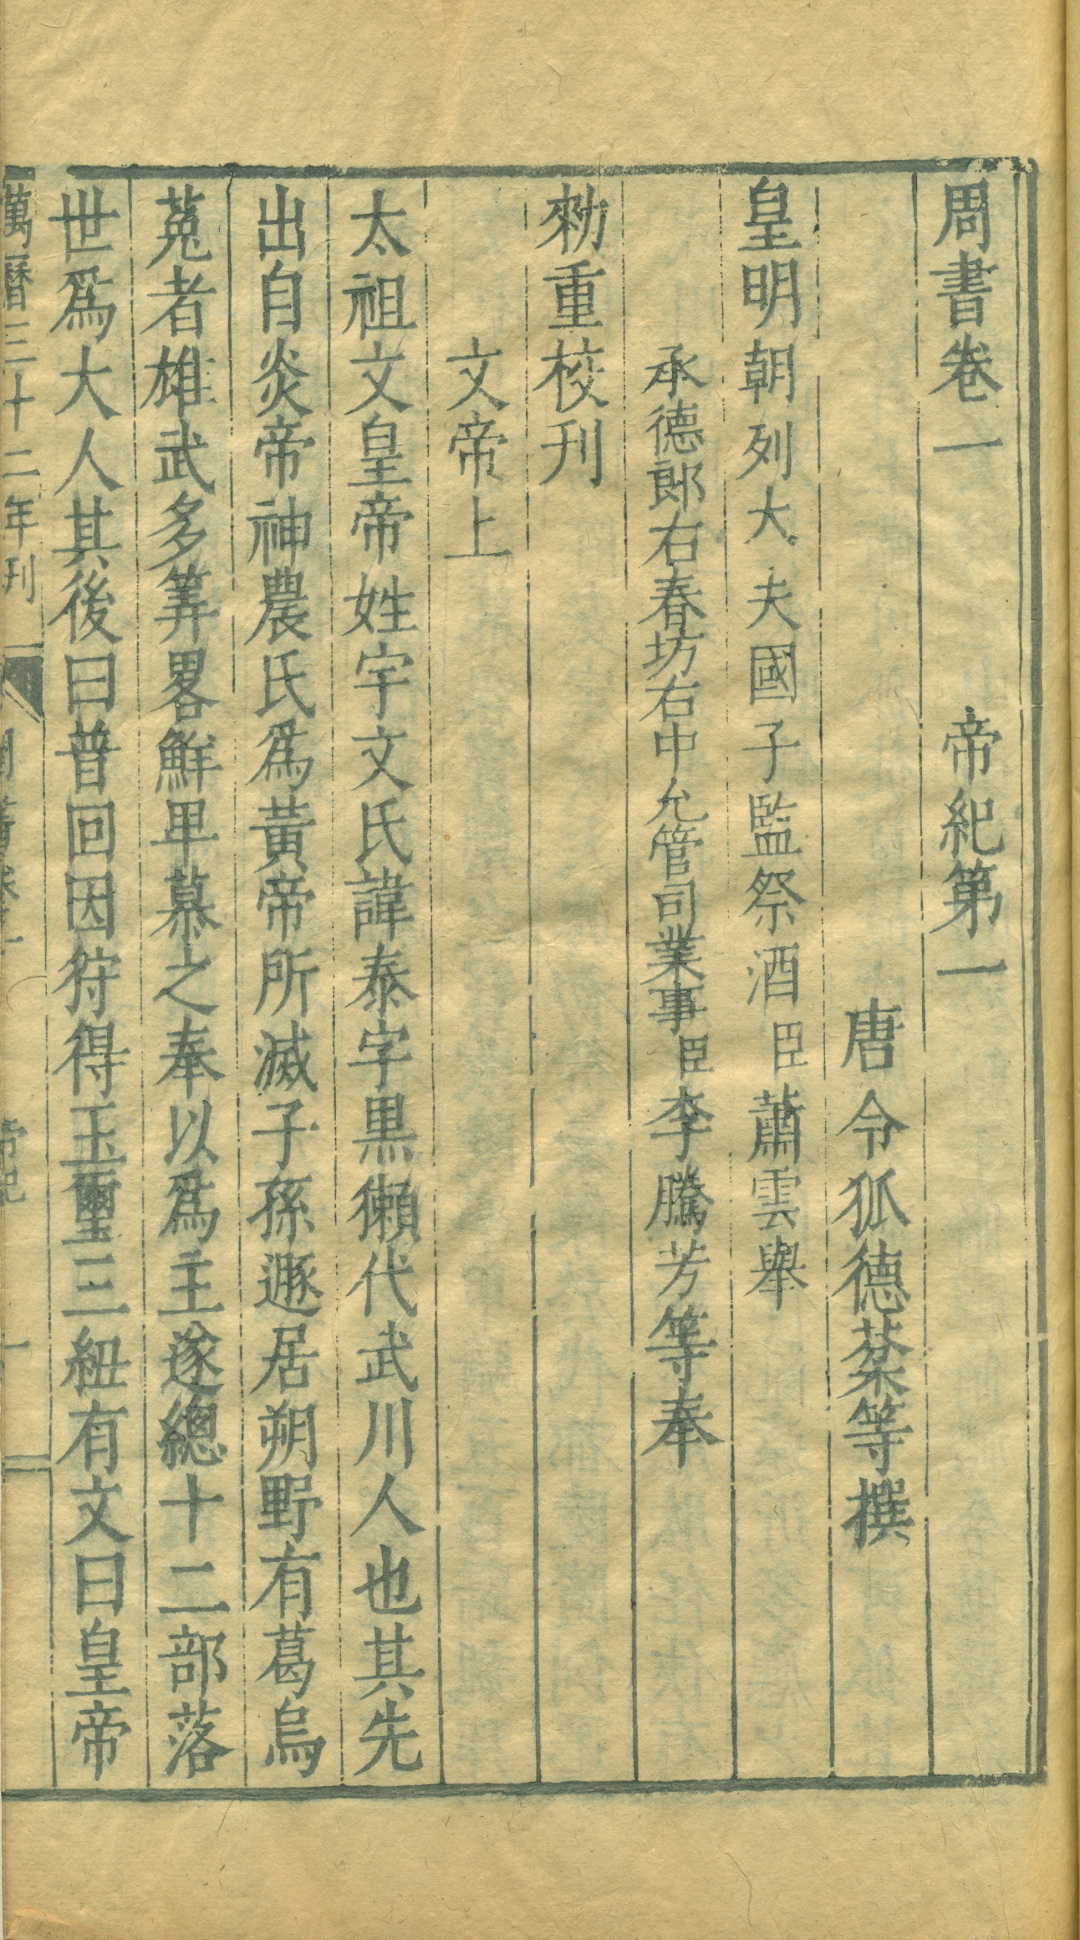 周書卷一　帝紀第一
唐令狐德棻等撰
皇明朝列大夫國子監祭酒臣蕭雲舉
承德郎右春坊右中允管司業事臣李騰芳等奉
勑重校刊
文帝上
太祖文皇帝姓宇文氏諱泰字黒獺代武川人也其先
出自炎帝神農氏爲黃帝所滅子孫遯居朔野有葛烏
菟者雄武多筭畧鮮卑慕之奉以爲主遂總十二部落
世爲大人其後曰普回因狩得玉璽三紐有文曰皇帝
萬曆三十二年刊　周書卷一　帝紀　一